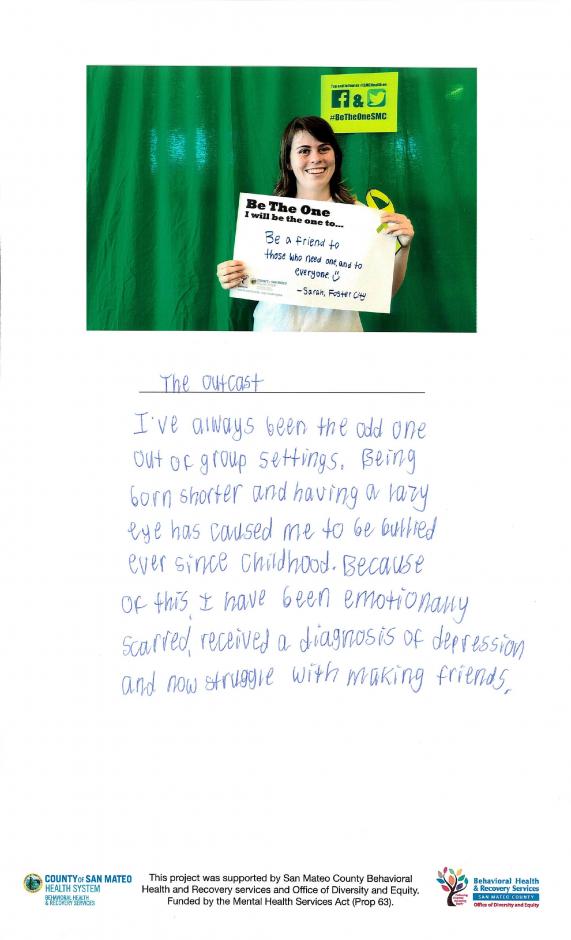 #BeTheOneSMC
Be The One
I will be the one to...
Be a friend to
those who need one, and to
everyone
-Sarah, Foster City
The outcast
I've always been the odd one
out of group settings. Being
born shorter and having a lazy
eye has caused me to be bullied
ever since childhood. Because
of this, I have been emotionally
scarred, received a diagnosis of depression
and now struggle with making friends.
COUNTY OF SAN MATEO
HEALTH SYSTEM
BEHAVIORAL HEALTH
& RECOVERY SERVICES
This project was supported by San Mateo County Behavioral
Health and Recovery services and Office of Diversity and Equity.
Funded by the Mental Health Services Act (Prop 63).
Behavioral Health
& Recovery Services
SAN MATEO COUNTY
Office of Diversity and Equity